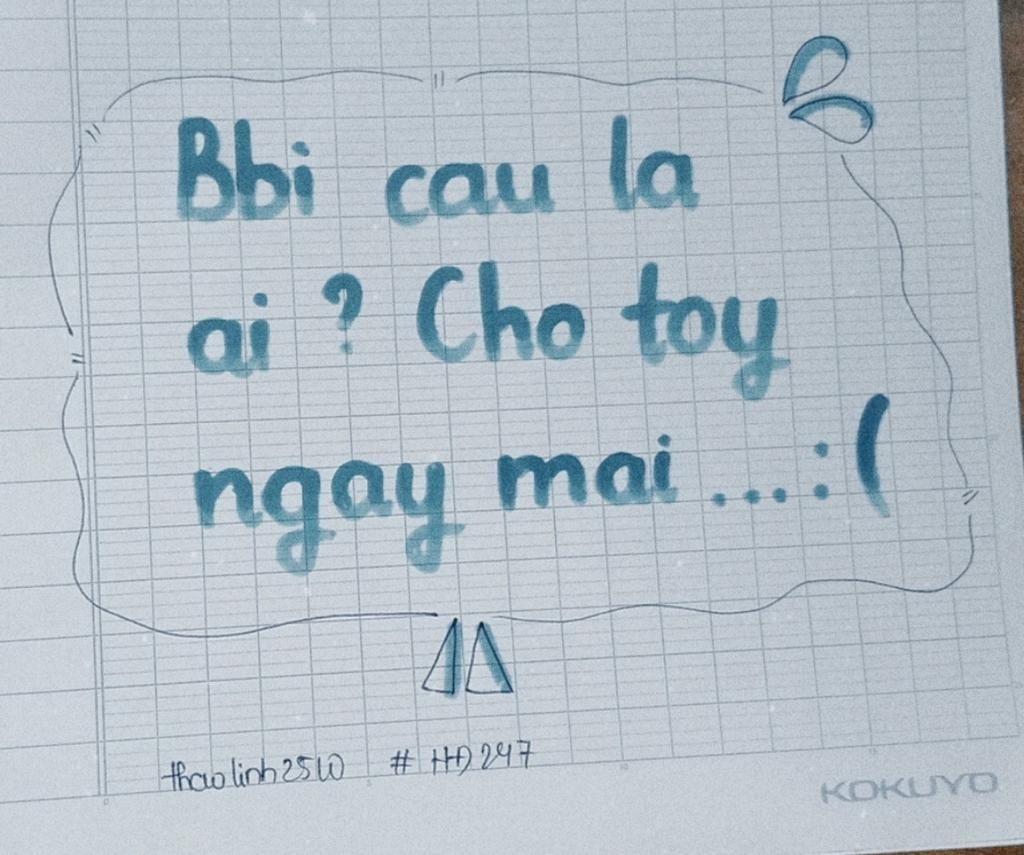 Bbi cau la
ai ? Cho toy
ngay mai ...:(
thaolinh2510 # HĐ247
KOKUYO